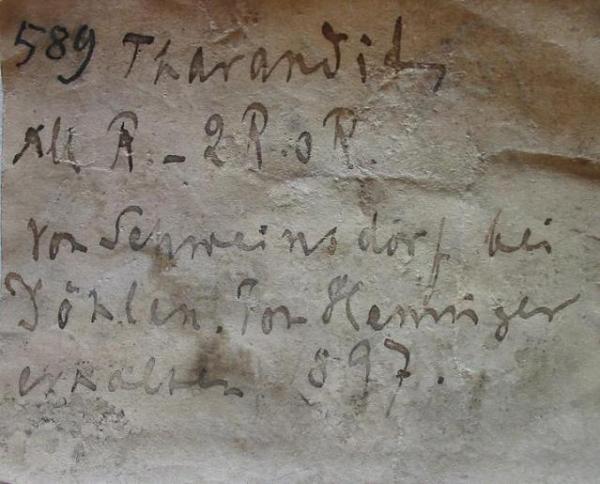 589 Tharandit,
R. - 2 R. o R.
von Schweinsdorf bei
Döhlen. Von Henniger
erhalten 1897.